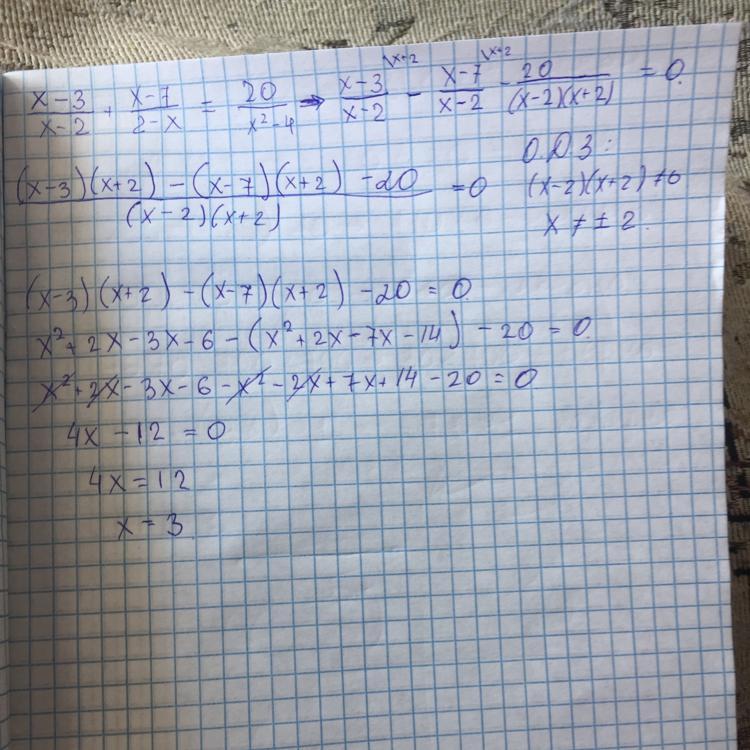 (x-3)/(x-2) + (x-7)/(2-x) = 20/(x²-4) → (x-3)/(x-2) \x+2 - (x-7)/(x-2) \x+2 - 20/((x-2)(x+2)) = 0
((x-3)(x+2) - (x-7)(x+2) - 20)/((x-2)(x+2)) = 0
О.Д.З:
(x-2)(x+2) ≠ 0
x ≠ ± 2.
(x-3)(x+2) - (x-7)(x+2) - 20 = 0
x² + 2x - 3x - 6 - (x² + 2x - 7x - 14) - 20 = 0
x² + 2x - 3x - 6 - x² - 2x + 7x + 14 - 20 = 0
4x - 12 = 0
4x = 12
x = 3